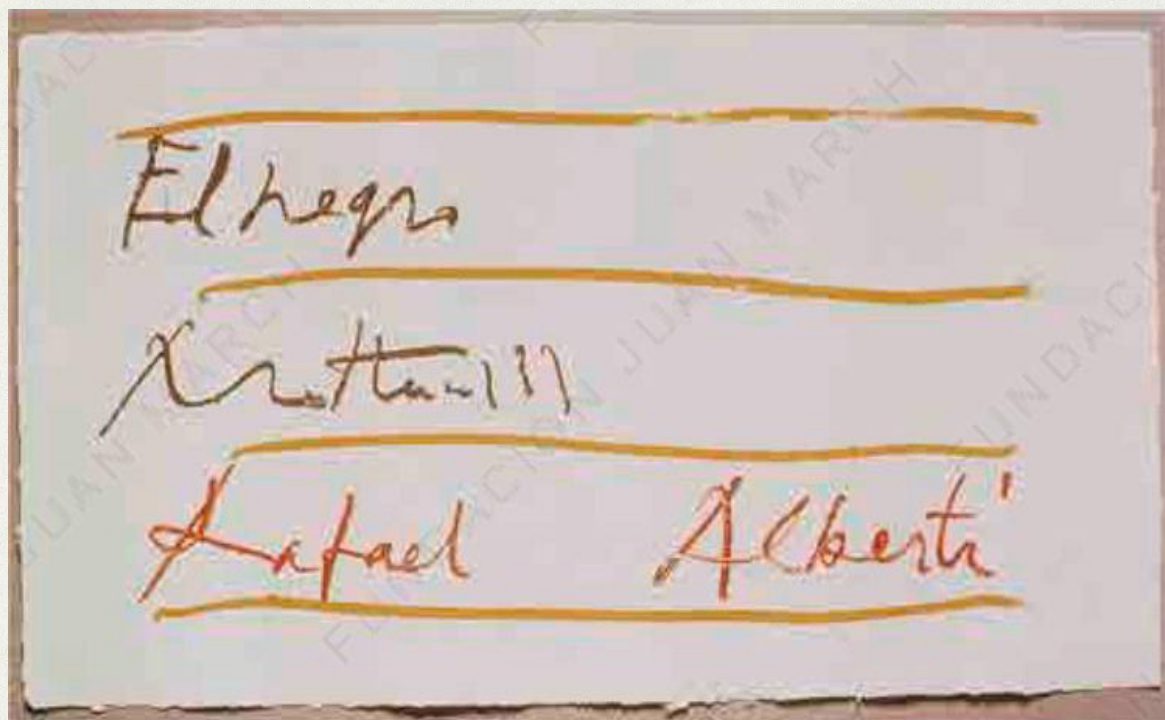 El negro
Motherwell
Rafael Alberti
FUNDACIÓN JUAN MARCH